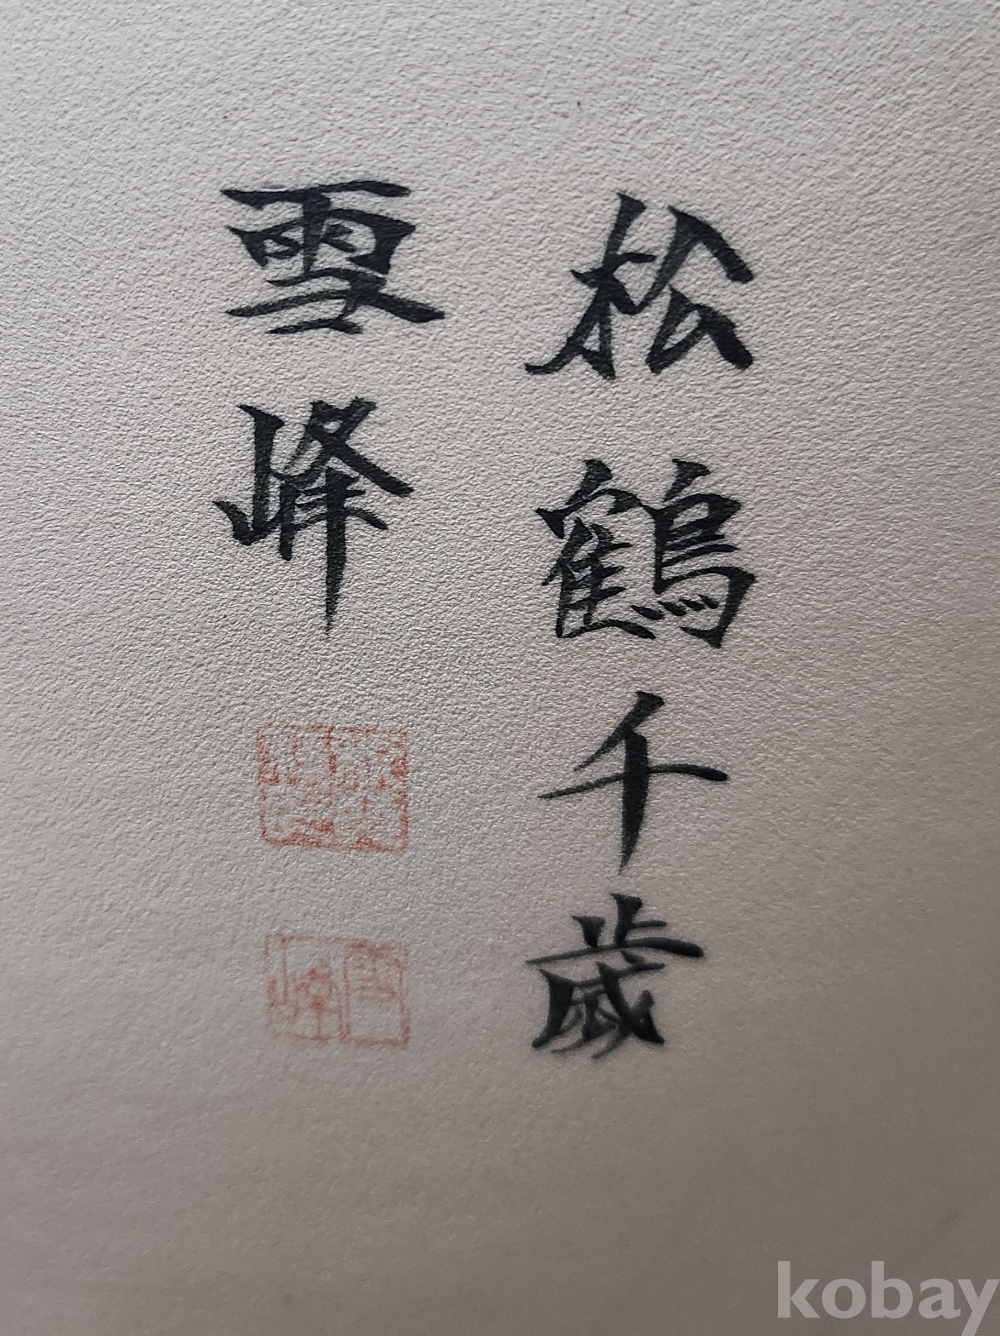 松鶴千歲
雪峰
kobay